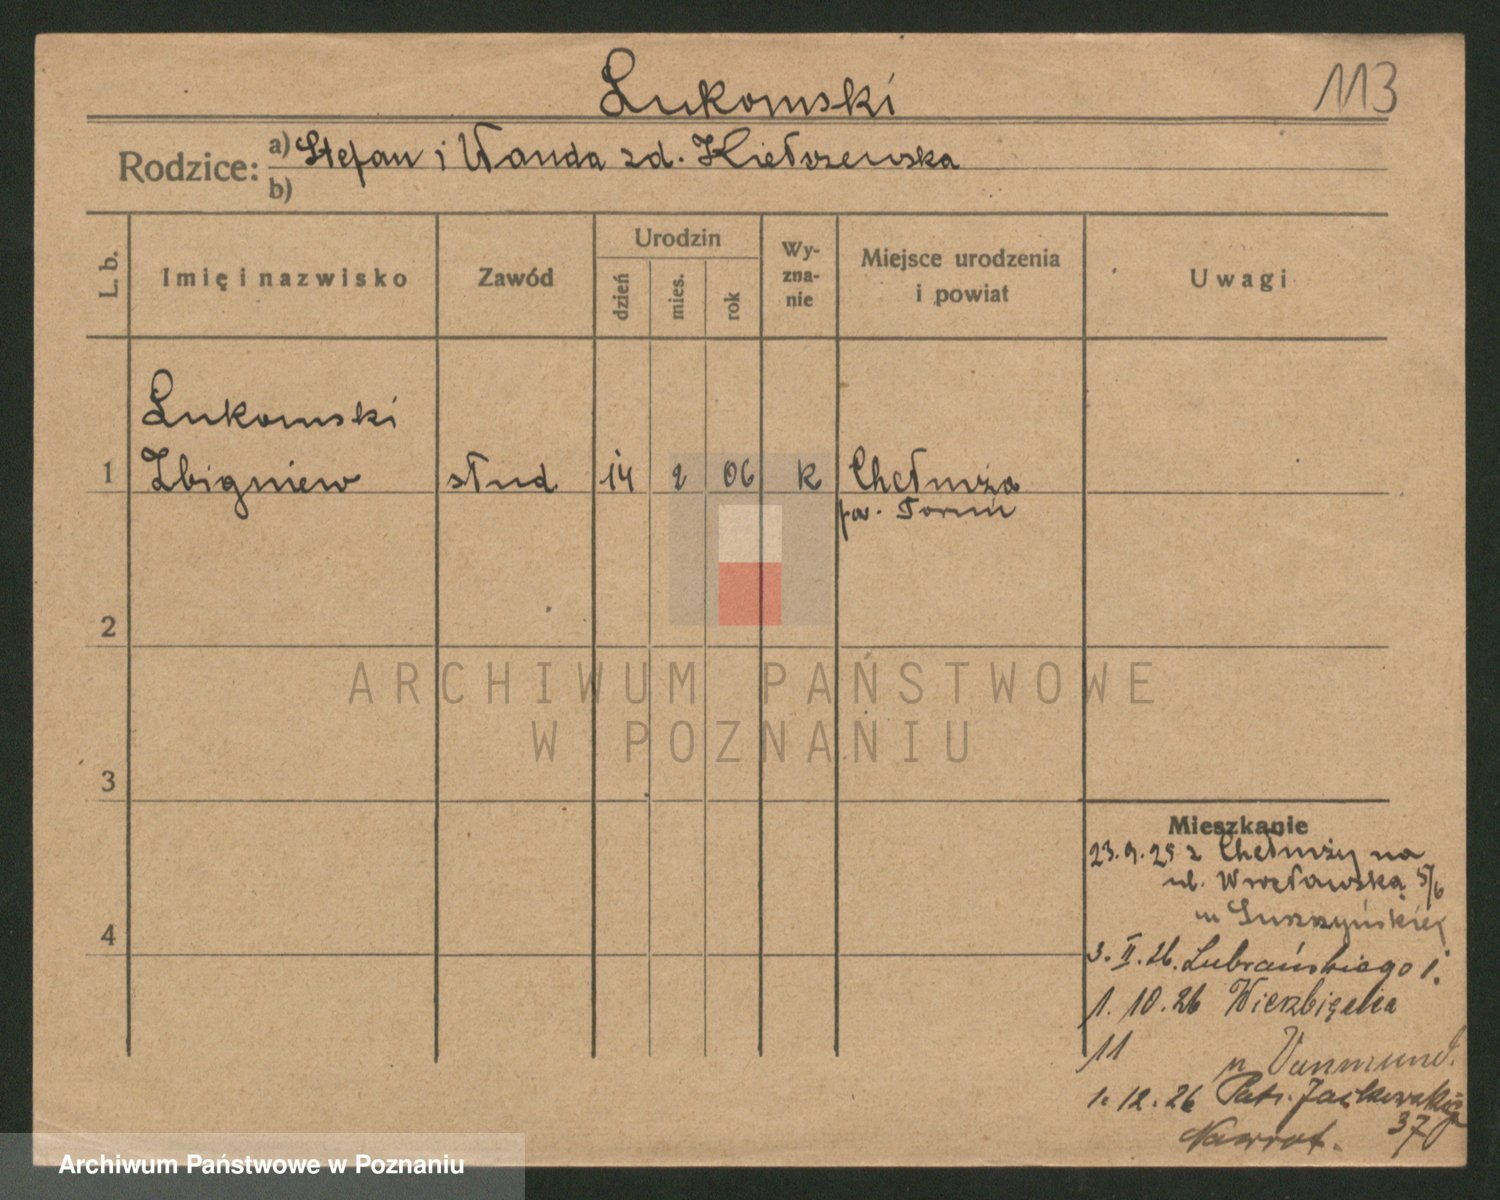 Łukomski
113
Rodzice: a) Stefan i Wanda zd. Kiełczewska
b)
L. b.
Imię i nazwisko
Zawód
Urodzin
dzień
mies.
rok
Wy-
zna-
nie
Miejsce urodzenia
i powiat
Uwagi
Łukomski
1 Zbigniew stud 14 2 06 k Chełmża
pow. Toruń
2
ARCHIWUM PAŃSTWOWE
W POZNANIU
3
Mieszkanie
23.9.25 z Chełmży na
ul. Wrocławską 5/6
4
3. II. 26. Lubrańskiego 1.
1. 10. 26 Wierzbięcice
11
1. 12. 26 Patr. Jackowskiego
37
Nawrot.
Archiwum Państwowe w Poznaniu